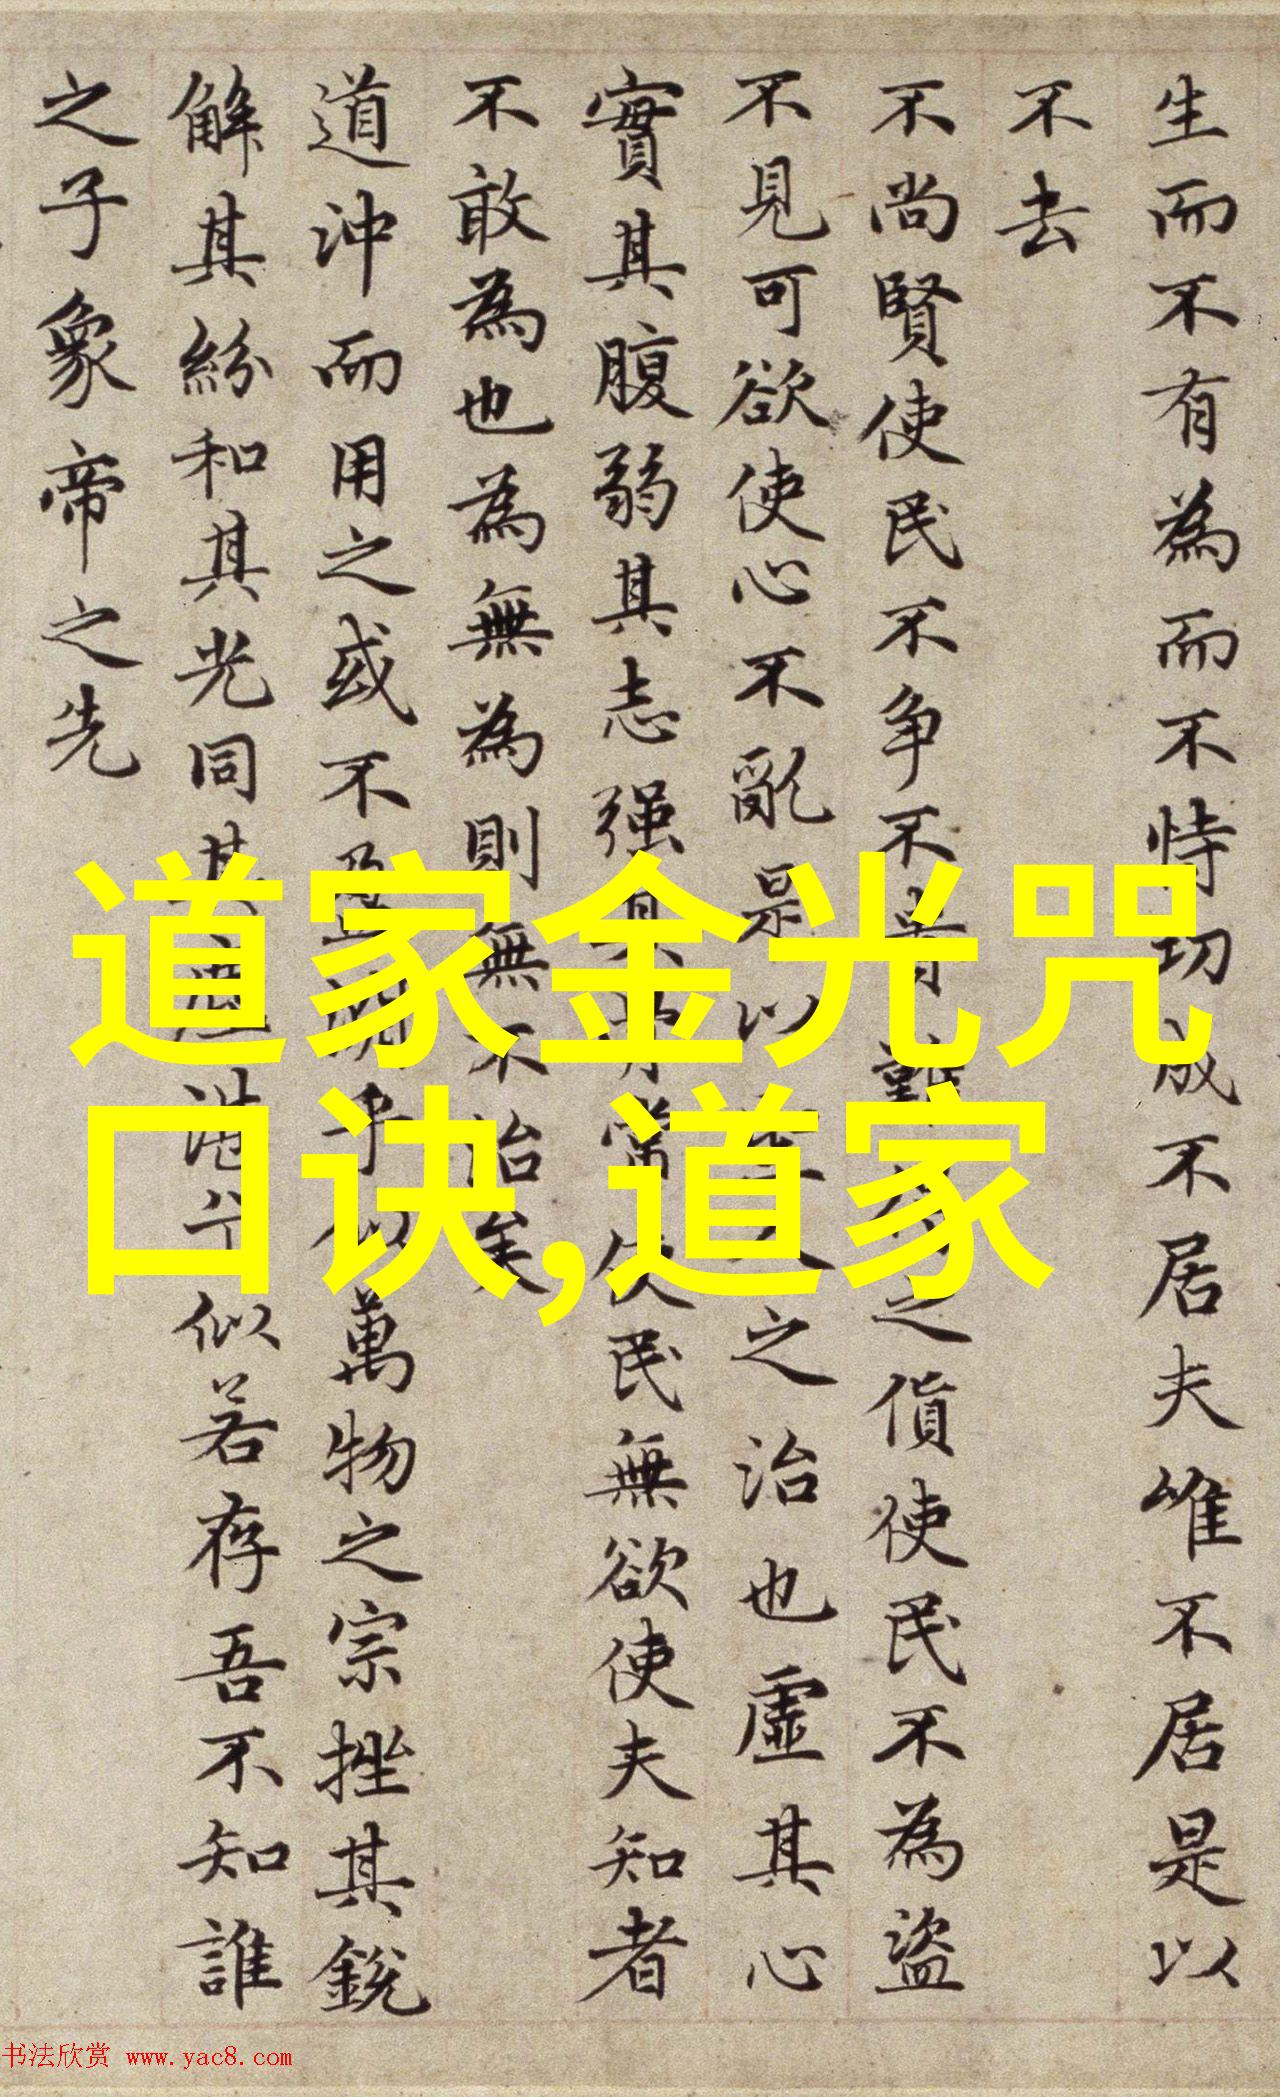 生而不有為而不恃功成不居夫唯不居是以
不去
不尚賢使民不争不貴難之貨使民不為盜
不見可欲使心不亂是以人之治也虛其心
實其腹弱其志强其骨常使民無欲使夫知者
不敢為也為無為則無不治矣
道沖而用之或不盈淵乎似萬物之宗挫其銳
解其紛和其光同其塵湛兮似若存吾不知誰
之子象帝之先
道家金光咒
口诀,道家
书法欣赏 www.yac8.com